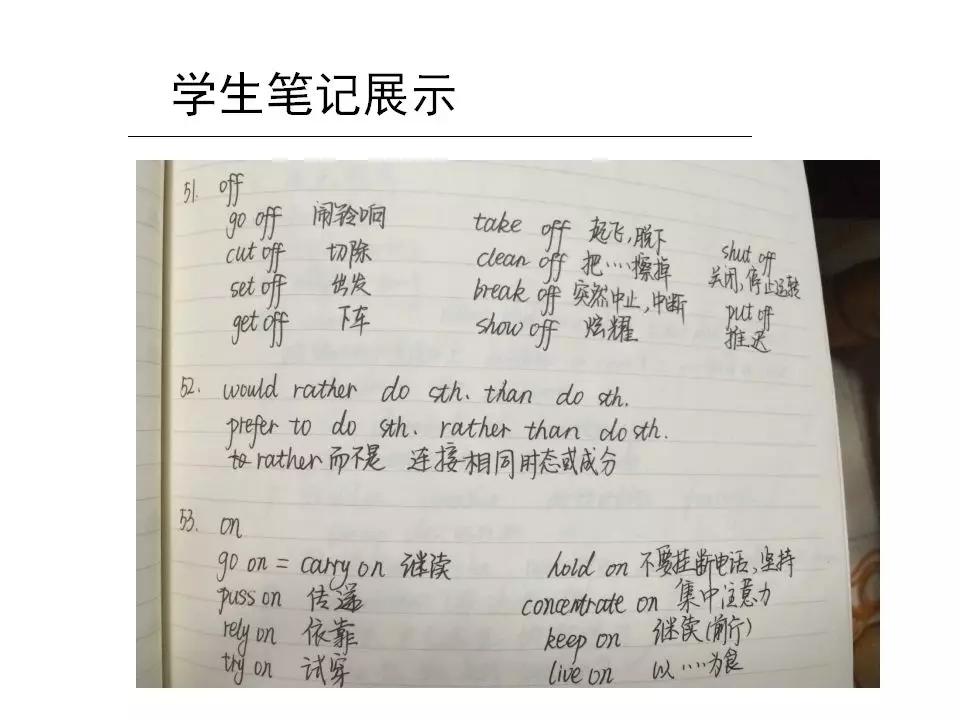 学生笔记展示
51. off
go off 闹铃响 take off 起飞,脱下
cut off 切除 clean off 把……擦掉 shut off
set off 出发 break off 突然中止,中断 关闭,停止运转
get off 下车 show off 炫耀 put off
推迟
52. would rather do sth. than do sth.
prefer to do sth. rather than do sth.
to rather 而不是 连接相同时态或成分
53. on
go on = carry on 继续 hold on 不要挂断电话,坚持
puss on 传递 concentrate on 集中注意力
rely on 依靠 keep on 继续(前行)
try on 试穿 live on 以……为食